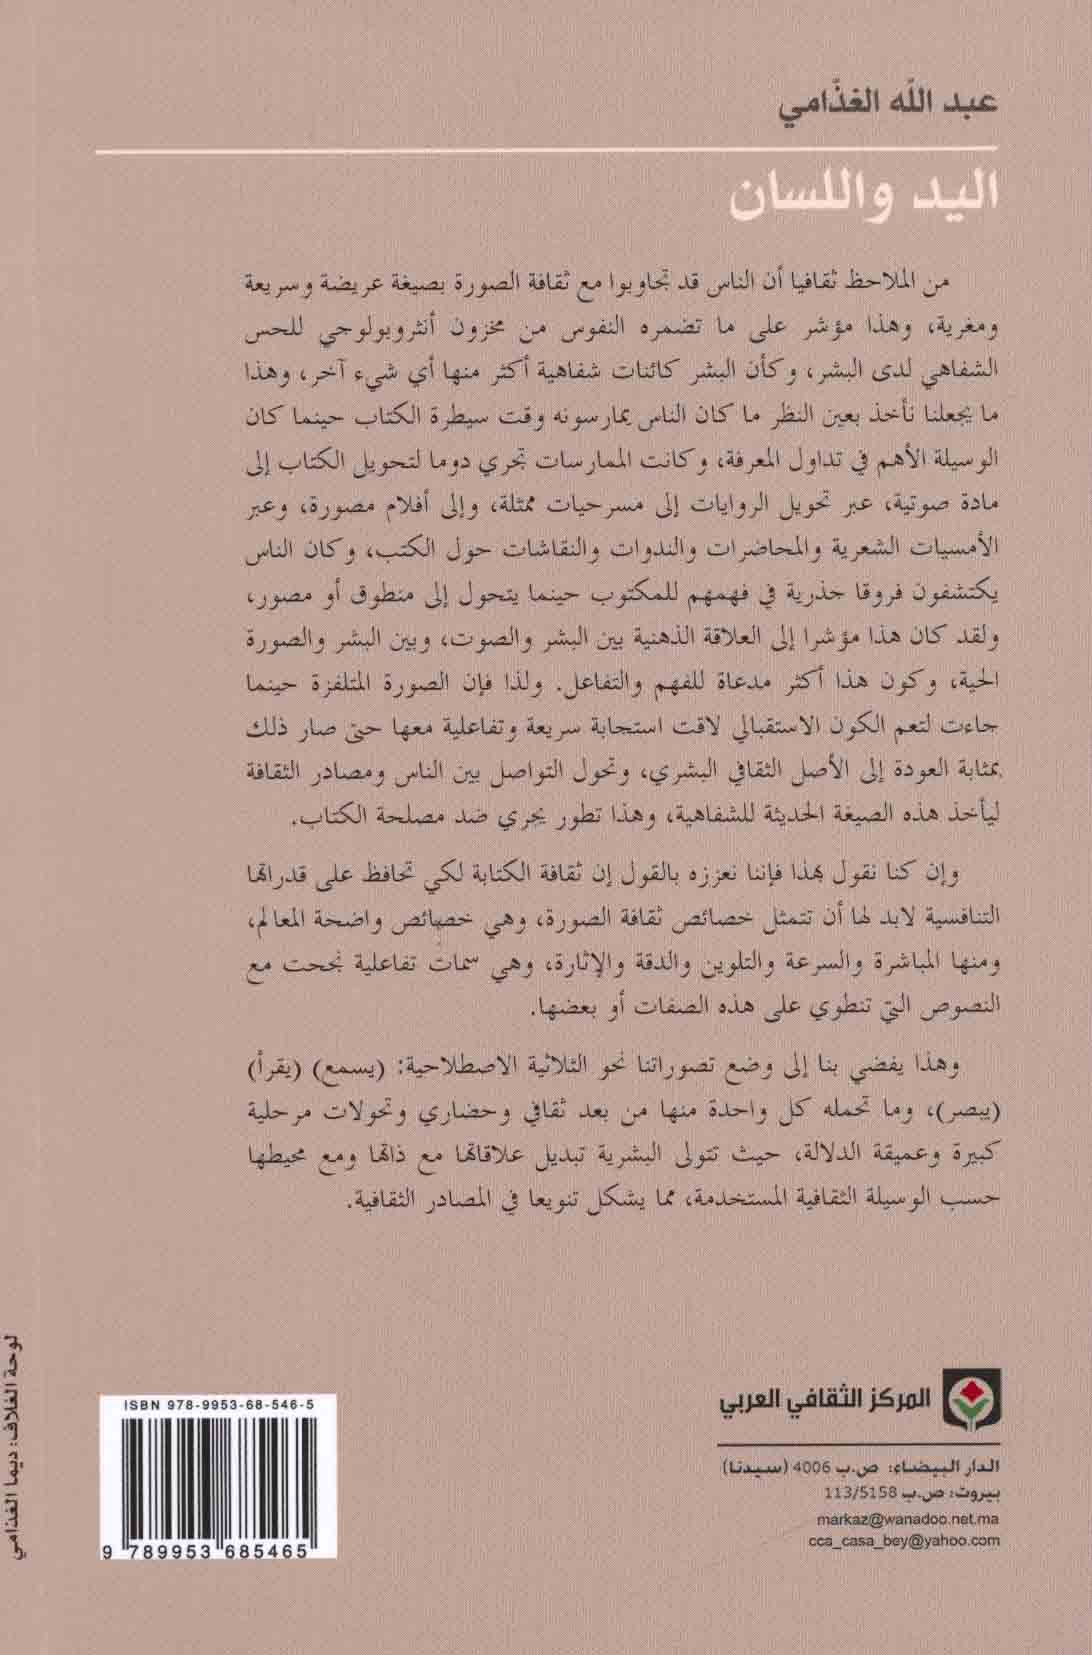 عبد الله الغذّامي
اليد واللسان
من الملاحظ ثقافيا أن الناس قد تجاوبوا مع ثقافة الصورة بصيغة عريضة وسريعة
ومغرية، وهذا مؤشر على ما تضمره النفوس من مخزون أنثروبولوجي للحس
الشفاهي لدى البشر، وكأن البشر كائنات شفاهية أكثر منها أي شيء آخر، وهذا
ما يجعلنا نأخذ بعين النظر ما كان الناس يمارسونه وقت سيطرة الكتاب حينما كان
الوسيلة الأهم في تداول المعرفة، وكانت الممارسات تجري دوما لتحويل الكتاب إلى
مادة صوتية، عبر تحويل الروايات إلى مسرحيات ممثلة، وإلى أفلام مصورة، وعبر
الأمسيات الشعرية والمحاضرات والندوات والنقاشات حول الكتب، وكان الناس
يكتشفون فروقا جذرية في فهمهم للمكتوب حينما يتحول إلى منطوق أو مصور،
ولقد كان هذا مؤشرا إلى العلاقة الذهنية بين البشر والصوت، وبين البشر والصورة
الحية، وكون هذا أكثر مدعاة للفهم والتفاعل. ولذا فإن الصورة المتلفزة حينما
جاءت لتعم الكون الاستقبالي لاقت استجابة سريعة وتفاعلية معها حتى صار ذلك
بمثابة العودة إلى الأصل الثقافي البشري، وتحول التواصل بين الناس ومصادر الثقافة
ليأخذ هذه الصيغة الحديثة للشفاهية، وهذا تطور يجري ضد مصلحة الكتاب.
وإن كنا نقول بهذا فإننا نعززه بالقول إن ثقافة الكتابة لكي تحافظ على قدراتها
التنافسية لابد لها أن تتمثل خصائص ثقافة الصورة، وهي خصائص واضحة المعالم،
ومنها المباشرة والسرعة والتلوين والدقة والإثارة، وهي سمات تفاعلية نجحت مع
النصوص التي تنطوي على هذه الصفات أو بعضها.
وهذا يفضي بنا إلى وضع تصوراتنا نحو الثلاثية الاصطلاحية: (يسمع) (يقرأ)
(يبصر)، وما تحمله كل واحدة منها من بعد ثقافي وحضاري وتحولات مرحلية
كبيرة وعميقة الدلالة، حيث تتولى البشرية تبديل علاقاتها مع ذاتها ومع محيطها
حسب الوسيلة الثقافية المستخدمة، مما يشكل تنويعا في المصادر الثقافية.
المركز الثقافي العربي
الدار البيضاء: ص.ب 4006 (سيدنا)
بيروت: ص.ب 113/5158
markaz@wanadoo.net.ma
cca_casa_bey@yahoo.com
ISBN 978-9953-68-546-5
9 789953 685465
لوحة الغلاف: ديما الغذامي